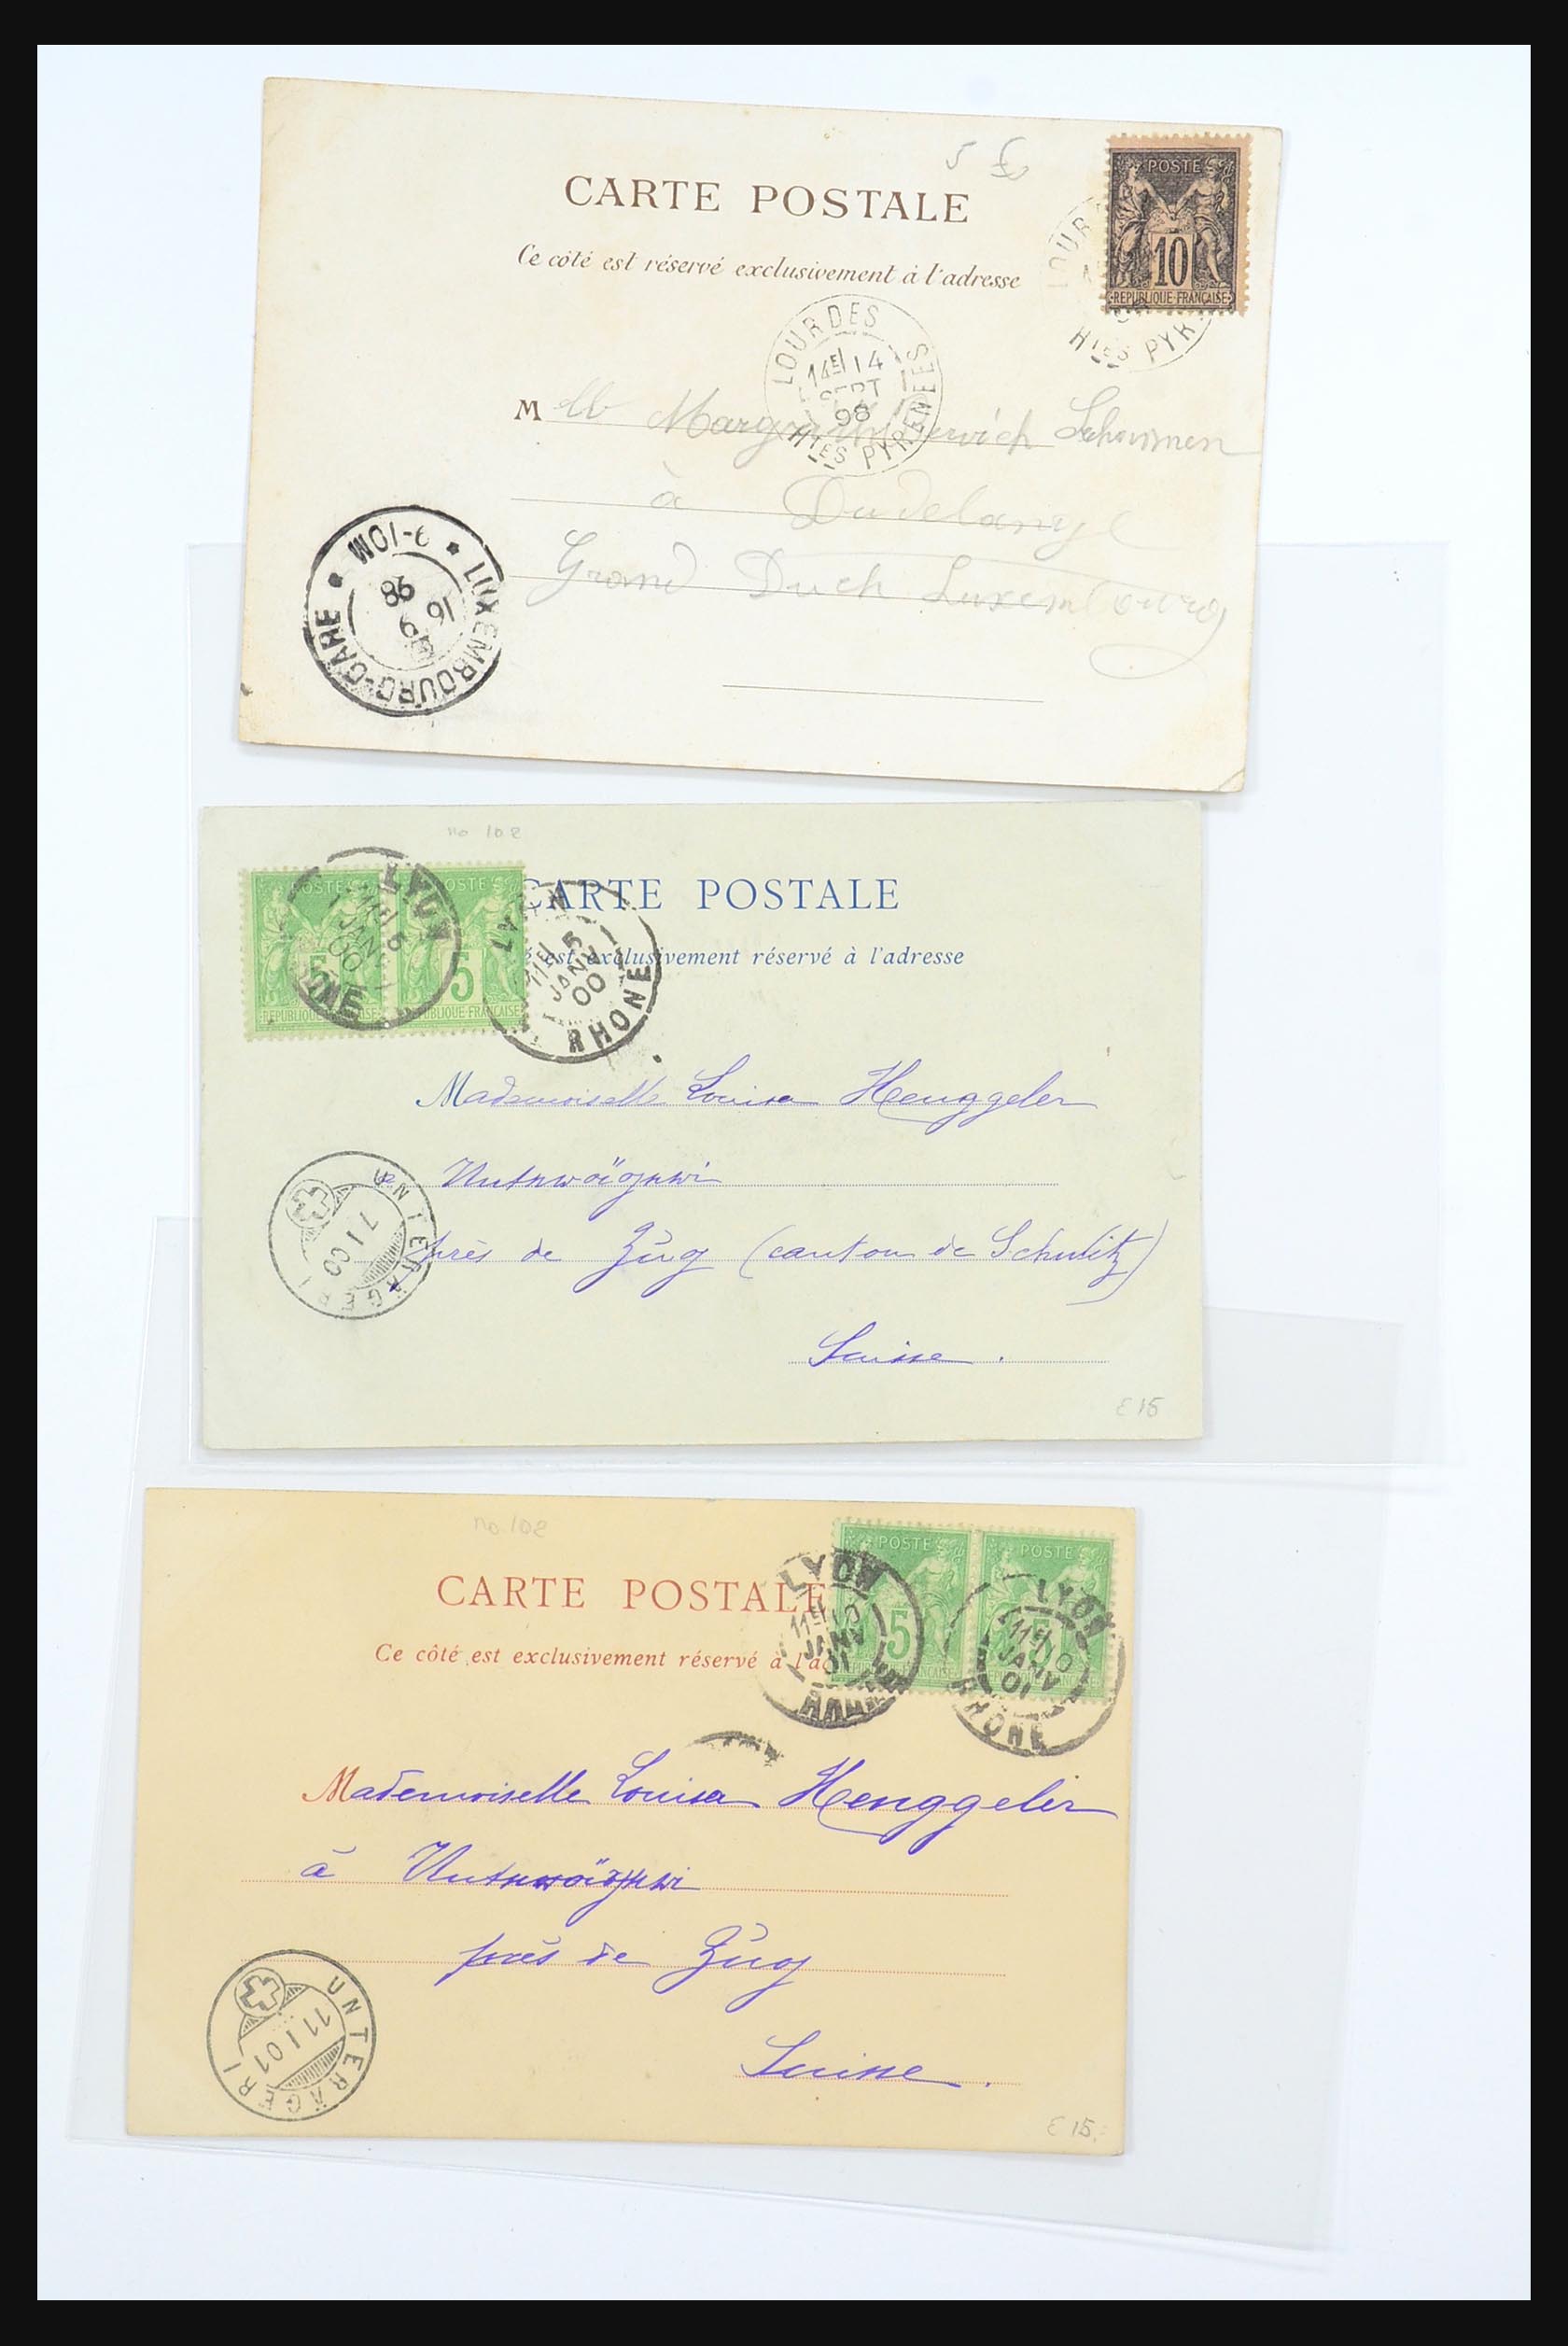 5 £
CARTE POSTALE
Ce côté est réservé exclusivement à l'adresse
POSTE
10
REPUBLIQUE FRANÇAISE
LOUR
HTES PYR
LOURDES
14E 14
SEPT
98
HTES PYRENEES
Mlle Schommen
à Dudelange
Grand Duch Luxembourg
LUXEMBOURG-GARE
9-10M
16
98
no 102
POSTE
5
REPUBLIQUE FRANÇAISE
POSTE
5
REPUBLIQUE FRANÇAISE
LYON
5
JANV
00
RHONE
11E 5
JANV
00
RHONE
CARTE POSTALE
é est exclusivement réservé à l'adresse
Mademoiselle Louisa Henggeler
près de Zug (canton de Schwitz)
Suisse.
UNTERÄGERI
7 I 00
E 15
no. 102
CARTE POSTALE
Ce côté est exclusivement réservé à l'ad
POSTE
5
POSTE
5
LYON
11E 10
JANV
01
RHONE
LYON
11E 10
JANV
01
RHONE
Mademoiselle Louisa Henggeler
à
près de Zug
Suisse.
UNTERÄGERI
11 I 01
E 15.